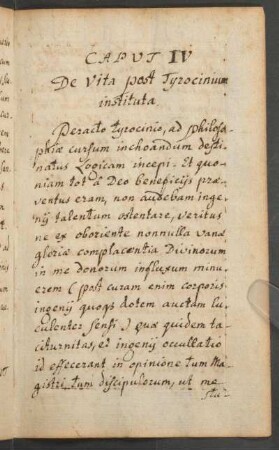 CAPUT IV
De Vita post Tyrocinium
instituta.
Peracto tyrocinio, ad philoso-
phiæ cursum inchoandum desti-
natus Logicam incepi. Et quo-
niam tot à Deo beneficijs præ-
ventus eram, non audebam inge-
nij talentum ostentare, veritus
ne ex oboriente nonnulla vanæ
gloriæ complacentia Divinorum
in me donorum influxum minu-
erem (post curam enim corporis
ingenij quoq3 dotem auctam lu-
culenter sensi) quæ quidem ta-
citurnitas, et ingenij occultatio
id effecerant in opinione tum Ma-
gistri, tum discipulorum, ut me
stu-